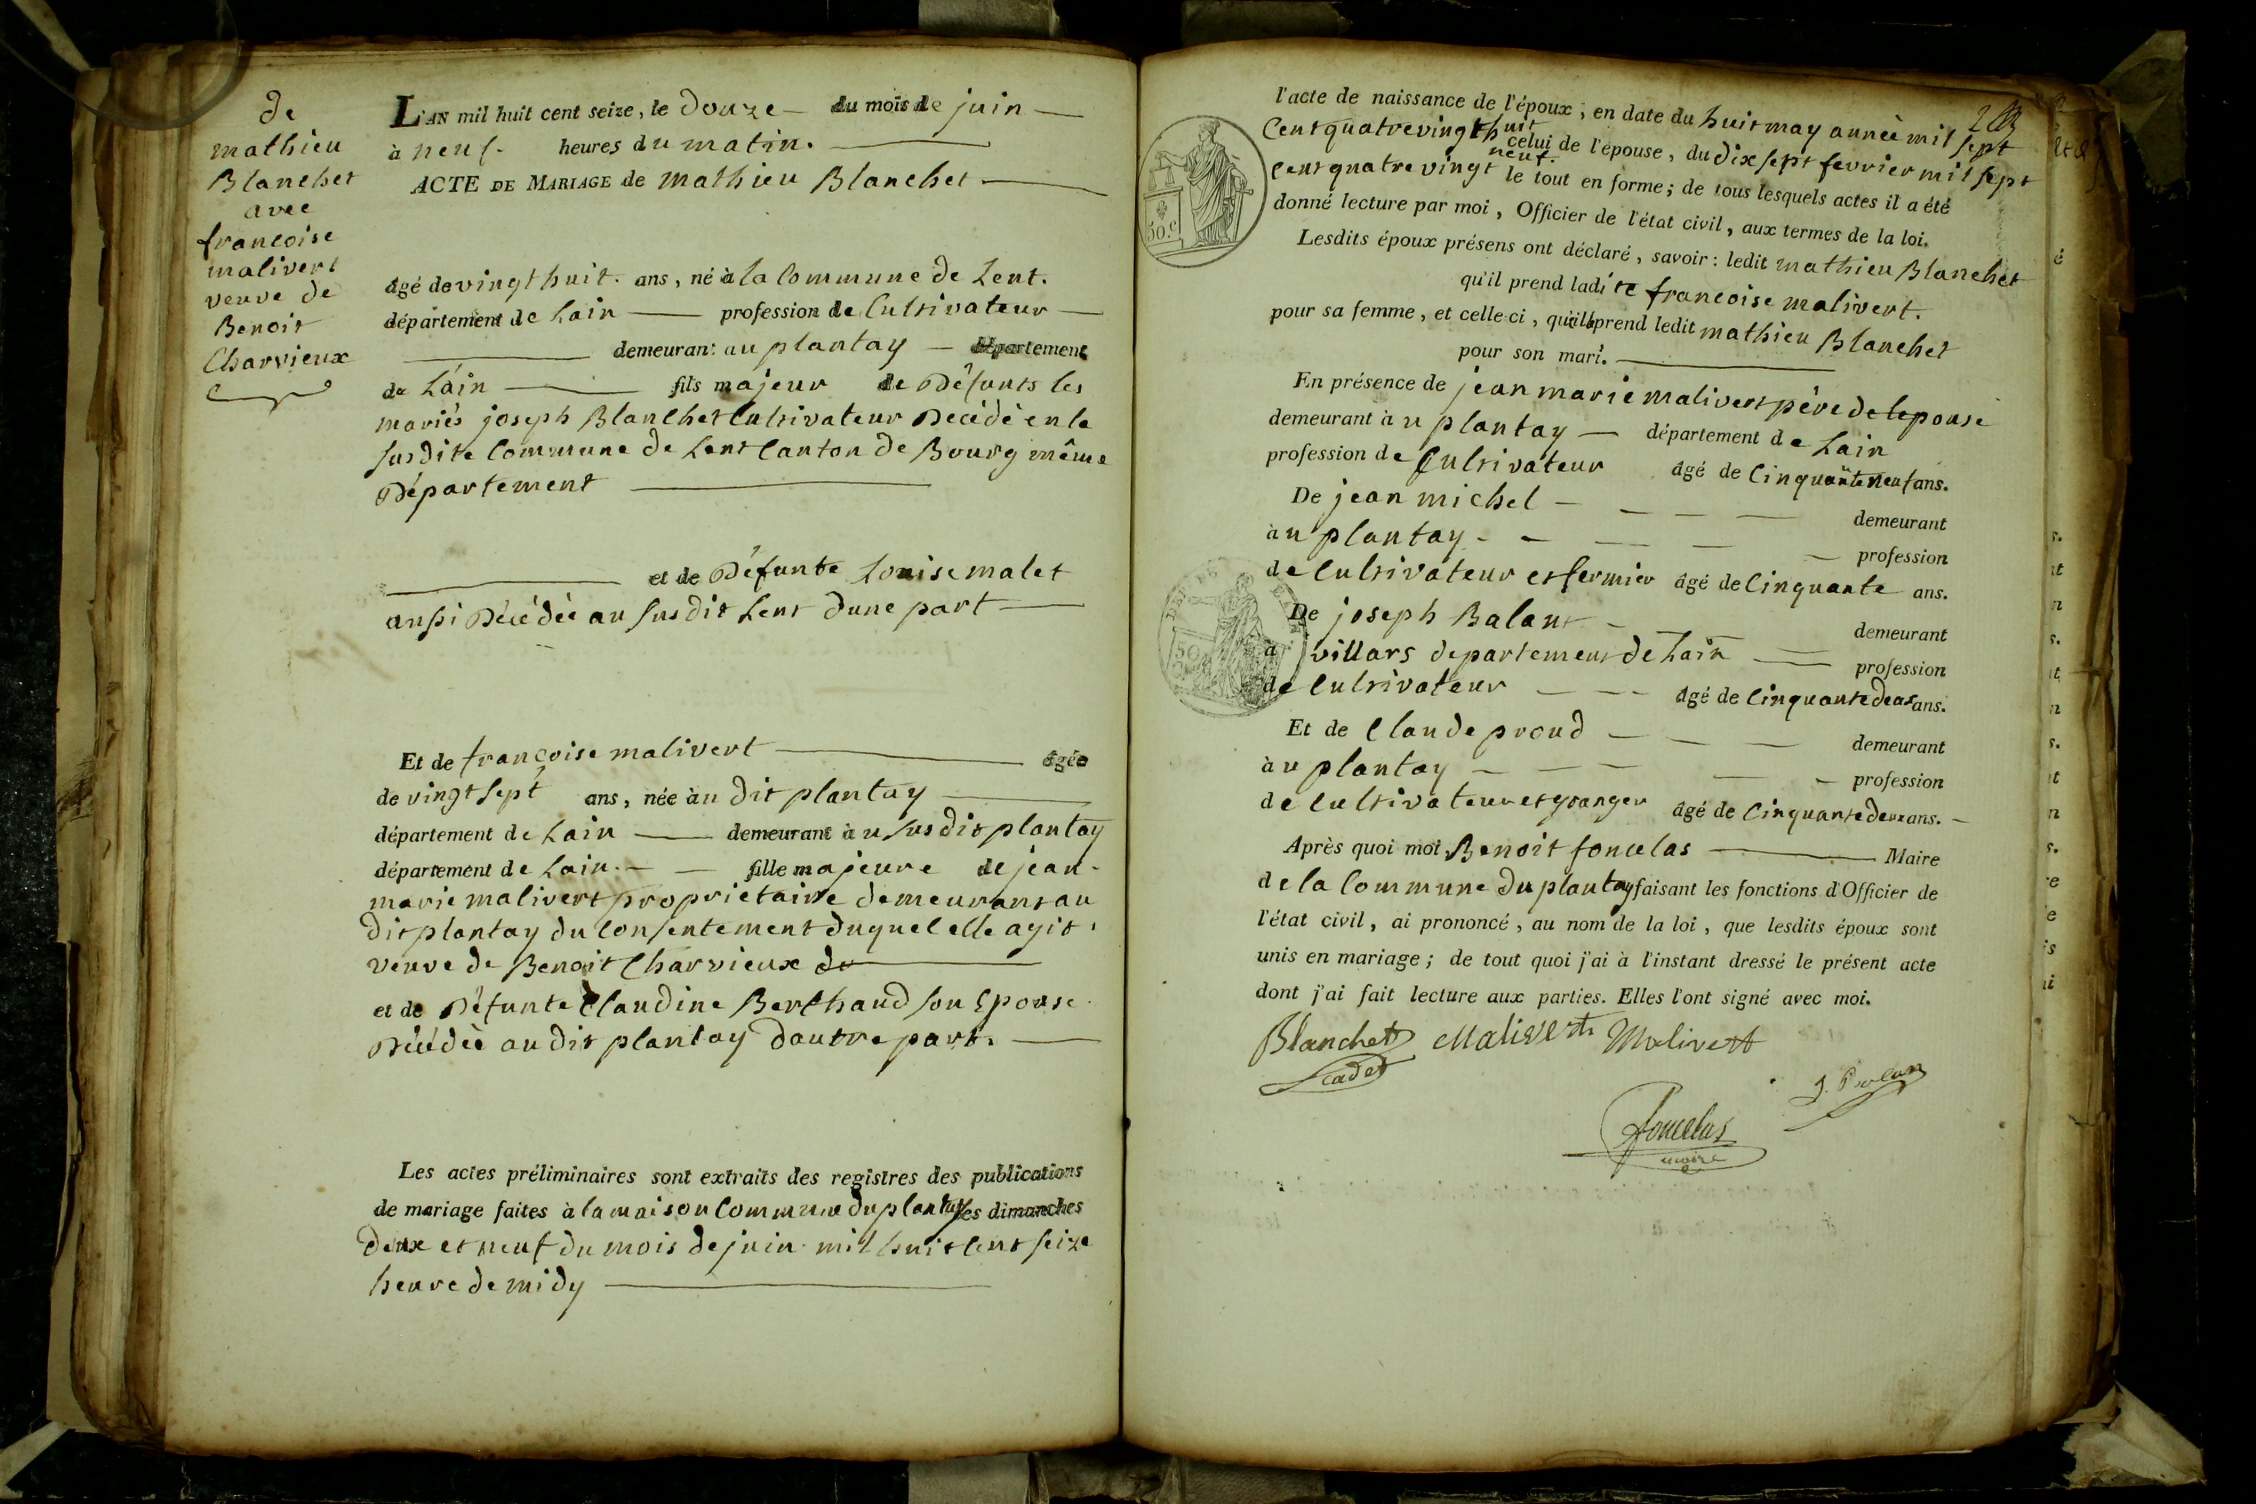 de
mathieu
Blanchet
avec
francoise
malivert
veuve de
Benoit
Charvieux
L'AN mil huit cent seize, le douze du mois de juin
à neuf heures du matin.
ACTE DE MARIAGE de mathieu Blanchet
âgé de vingt huit ans, né à la Commune de Lent.
département de Lain profession de Cultivateur
demeurant au plantay département
de Lain fils majeur de Défunts les
mariés joseph Blanchet Cultivateur Décédé en la
susdite Commune de Lent Canton de Bourg même
Département
et de Défunte Louise malet
aussi Décédée au susdit Lent dune part
Et de françoise malivert âgée
de vingt sept ans, née au dit plantay
département de Lain demeurant à u susdit plantay
département de Lain. fille majeure de jean
marie malivert proprietaire demeurant au
dit plantay du Consentement duquel elle agit,
veuve de Benoit Charvieux
et de Défunte Claudine Berthaud son Epouse
Décédée au dit plantay dautre part.
Les actes préliminaires sont extraits des registres des publications
de mariage faites à la maison Commune du plantay les dimanches
deux et neuf du mois de juin mil huit cent seize
heure de midy
l'acte de naissance de l'époux, en date du huit may année mil sept
Cent quatre vingt huit celui de l'épouse, du dix sept fevrier mil sept
Cent quatre vingt neuf. le tout en forme; de tous lesquels actes il a été
donné lecture par moi, Officier de l'état civil, aux termes de la loi.
Lesdits époux présens ont déclaré, savoir: ledit mathieu Blanchet
qu'il prend ladite francoise malivert.
pour sa femme, et celle-ci, qu'elle prend ledit mathieu Blanchet
pour son mari.
En présence de jean marie malivert père de lepouse
demeurant à u plantay département de Lain
profession de Cultivateur âgé de Cinquante neuf ans.
De jean michel demeurant
à u plantay profession
de Cultivateur et fermier âgé de Cinquante ans.
De joseph Balant demeurant
à villars departement de Lain profession
de Cultivateur âgé de Cinquante deux ans.
Et de Claude proud demeurant
à u plantay profession
de Cultivateur et granger âgé de Cinquante deux ans.
Après quoi moi Benoit foncelas Maire
de la Commune du plantay faisant les fonctions d'Officier de
l'état civil, ai prononcé, au nom de la loi, que lesdits époux sont
unis en mariage; de tout quoi j'ai à l'instant dressé le présent acte
dont j'ai fait lecture aux parties. Elles l'ont signé avec moi.
Blanchet Malivert Malivert
cadet
foncelas
maire
50.c